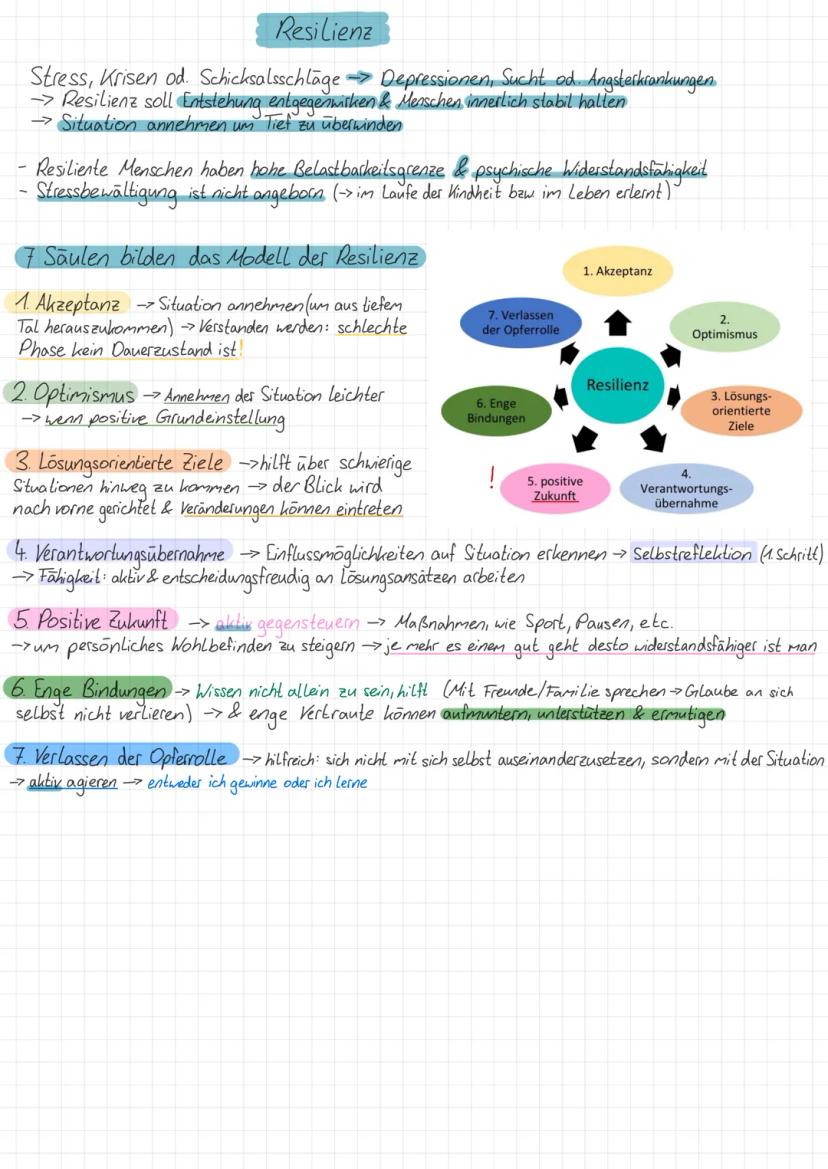 Resilienz
Stress, Krisen od. Schicksalsschläge → Depressionen, Sucht od. Angsterkrankungen
→ Resilienz soll Entstehung entgegenwirken & Menschen innerlich stabil halten
→ Situation annehmen um Tief zu überwinden
- Resiliente Menschen haben hohe Belastbarkeitsgrenze & psychische Widerstandsfähigkeit
- Stressbewältigung ist nicht angeborn (→ im Laufe der Kindheit bzw im Leben erlernt)
7 Säulen bilden das Modell der Resilienz
1. Akzeptanz → Situation annehmen (um aus tiefem
Tal herauszukommen) → Verstanden werden: schlechte
Phase kein Dauerzustand ist!
2. Optimismus → Annehmen der Situation leichter
→ wenn positive Grundeinstellung
3. Lösungsorientierte Ziele → hilft über schwierige
Situationen hinweg zu kommen → der Blick wird
nach vorne gerichtet & Veränderungen können eintreten
1. Akzeptanz
2.
Optimismus
3. Lösungs-
orientierte
Ziele
4.
Verantwortungs-
übernahme
! 5. positive
Zukunft
6. Enge
Bindungen
7. Verlassen
der Opferrolle
Resilienz
4. Verantwortungsübernahme → Einflussmöglichkeiten auf Situation erkennen → Selbstreflektion (1. Schritt)
→ Fähigkeit: aktiv & entscheidungsfreudig an Lösungsansätzen arbeiten
5. Positive Zukunft → aktiv gegensteuern → Maßnahmen, wie Sport, Pausen, etc.
→ um persönliches Wohlbefinden zu steigern → je mehr es einem gut geht desto widerstandsfähiger ist man
6. Enge Bindungen → Wissen nicht allein zu sein, hilft (Mit Freunde/Familie sprechen → Glaube an sich
selbst nicht verlieren) → & enge Vertraute können aufmuntern, unterstützen & ermutigen
7. Verlassen der Opferrolle → hilfreich: sich nicht mit sich selbst auseinanderzusetzen, sondern mit der Situation
→ aktiv agieren → entweder ich gewinne oder ich lerne